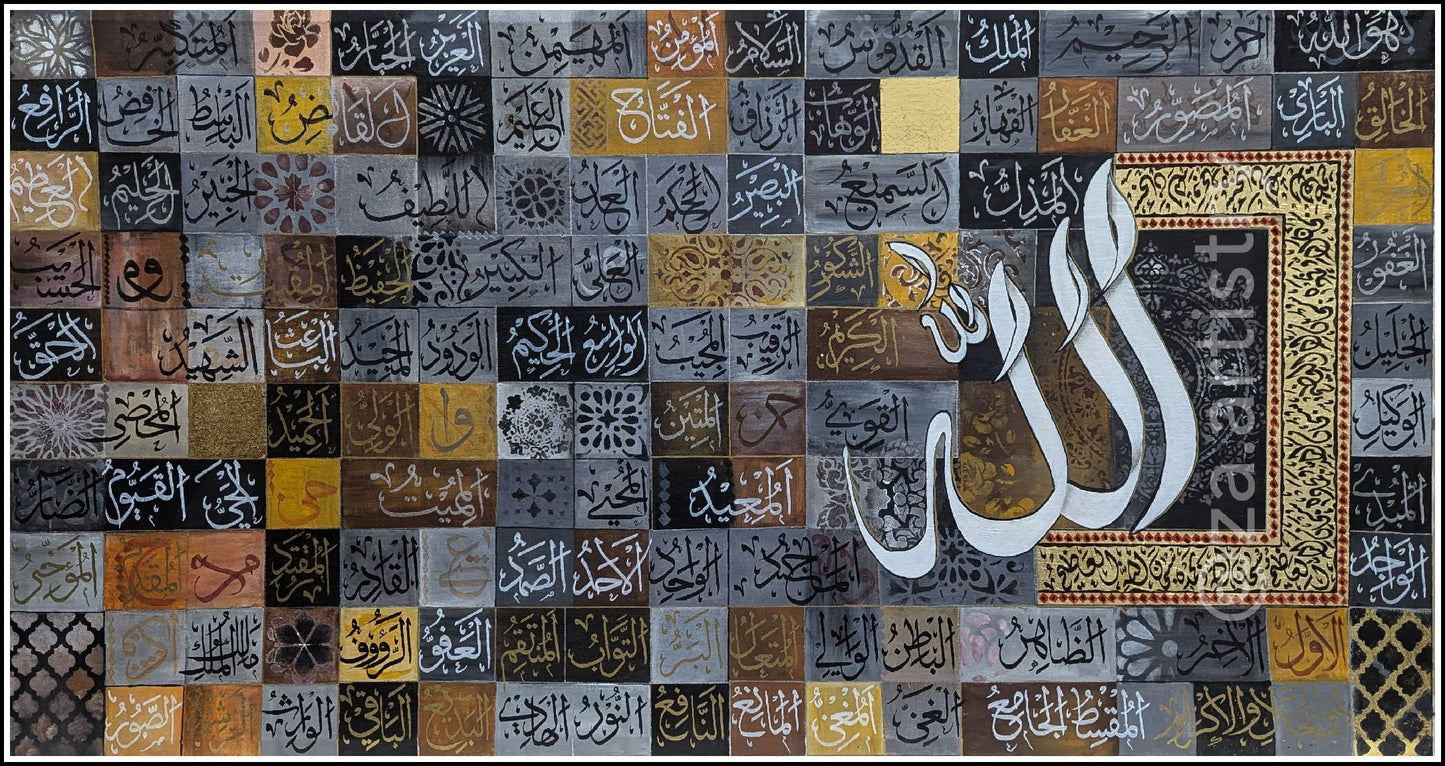 هو الله الرحمن الرحيم الملك القدوس السلام المؤمن المهيمن العزيز الجبار المتكبر
الخالق الباري المصور الغفار القهار الوهاب الرزاق الفتاح العليم القا الباسط الخافض الرافع
المذل السميع البصير الحكم العدل اللطيف الخبير الحليم العظيم
الغفور الشكور العلي الكبير الحفيظ المقيت الحسيب
الجليل الكريم الرقيب المجيب الواسع الحكيم الودود المجيد الباعث الشهيد الحق
الوكيل القوي المتين الولي الحميد المحصي
المبدي المعيد المحيي المميت الحي القيوم الضار
الواجد الماجد الواحد الاحد الصمد القادر المقتدر المقدم المؤخر
الاول الاخر الظاهر الباطن الوالي المتعال البر التواب المنتقم العفو الرؤوف مالك الملك
والاكرام المقسط الجامع الغني المغني المانع النافع النور الهادي البديع الباقي الوارث الرشيد الصبور
الله
@za.artist